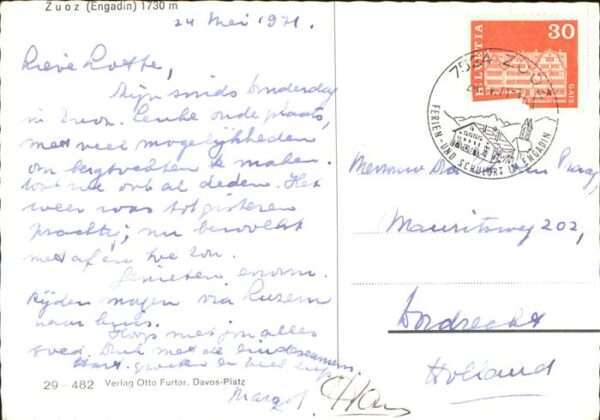 Zuoz (Engadin) 1730 m
24 Mei 1971.
Lieve Lotte,
Zijn sinds donderdag
in Zuoz. Leuke oude plaats,
met veel mogelijkheden
om bergtochten te maken.
wat we ook al deden. Het
weer was tot gisteren
prachtig; nu bewolkt
met af en toe zon.
Genieten enorm.
Rijden morgen via Luzern
naar huis.
Hoop met jou alles
goed. Druk met de eindexamens.
Hart. groeten en veel
Margot Hans
29 - 482 Verlag Otto Furter, Davos-Platz
HELVETIA
30
GAIS
7524 ZUOZ
FERIEN- UND SCHULORT IM ENGADIN
Mevrouw
Mauritsweg 202,
Dordrecht
Holland